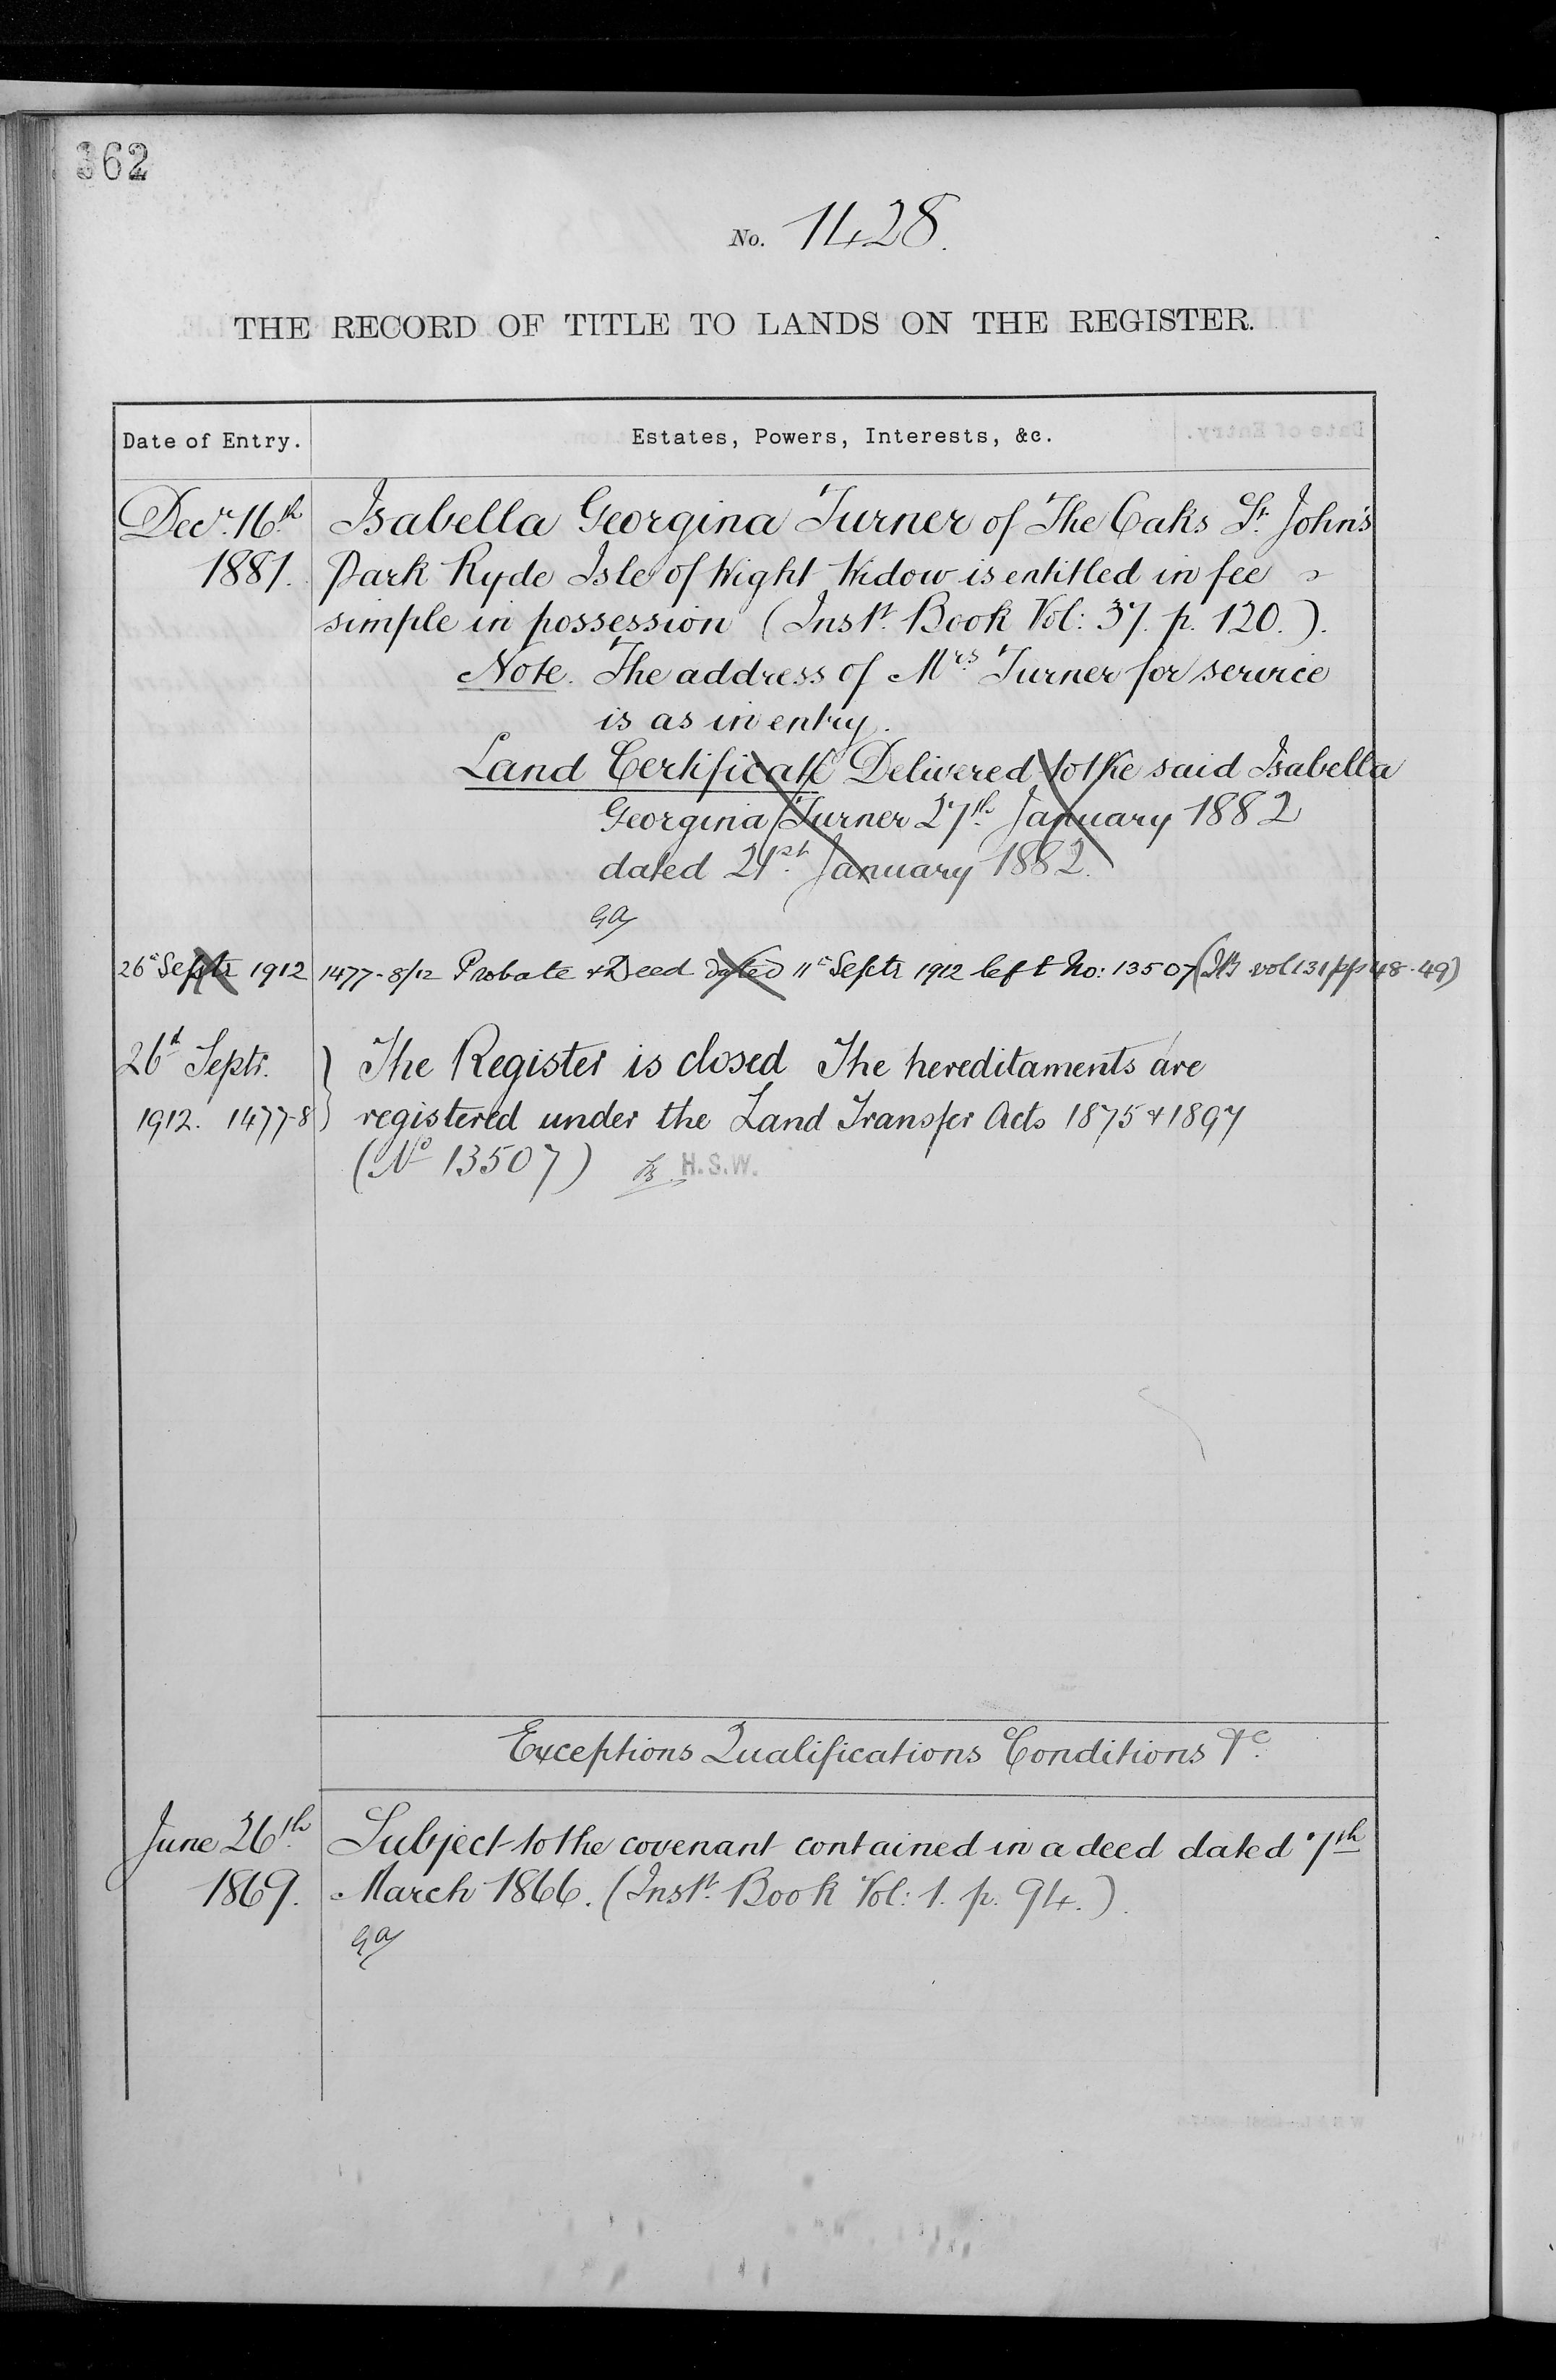 362
No. 1428.
THE RECORD OF TITLE TO LANDS ON THE REGISTER.
Date of Entry. Estates, Powers, Interests, &c.
Decr. 16th Isabella Georgina Turner of The Oaks St. John's
1881. Park Ryde Isle of Wight Widow is entitled in fee
simple in possession (Inst. Book Vol: 37. p. 120.).
Note. The address of Mrs. Turner for service
is as in entry.
Land Certificate Delivered to the said Isabella
Georgina Turner 27th January 1882
dated 21st January 1882.
26th Septr 1912 1477-8/12 Probate & Deed dated 11th Septr 1912 left No: 13507 (IB vol 131 pp 48-49)
26th Septr. The Register is closed The hereditaments are
1912. 1477-8 registered under the Land Transfer Acts 1875 & 1897
(No 13507) H.S.W.
Exceptions Qualifications Conditions &c.
June 26th Subject to the covenant contained in a deed dated 7th
1869. March 1866. (Inst. Book Vol: 1. p. 94.).